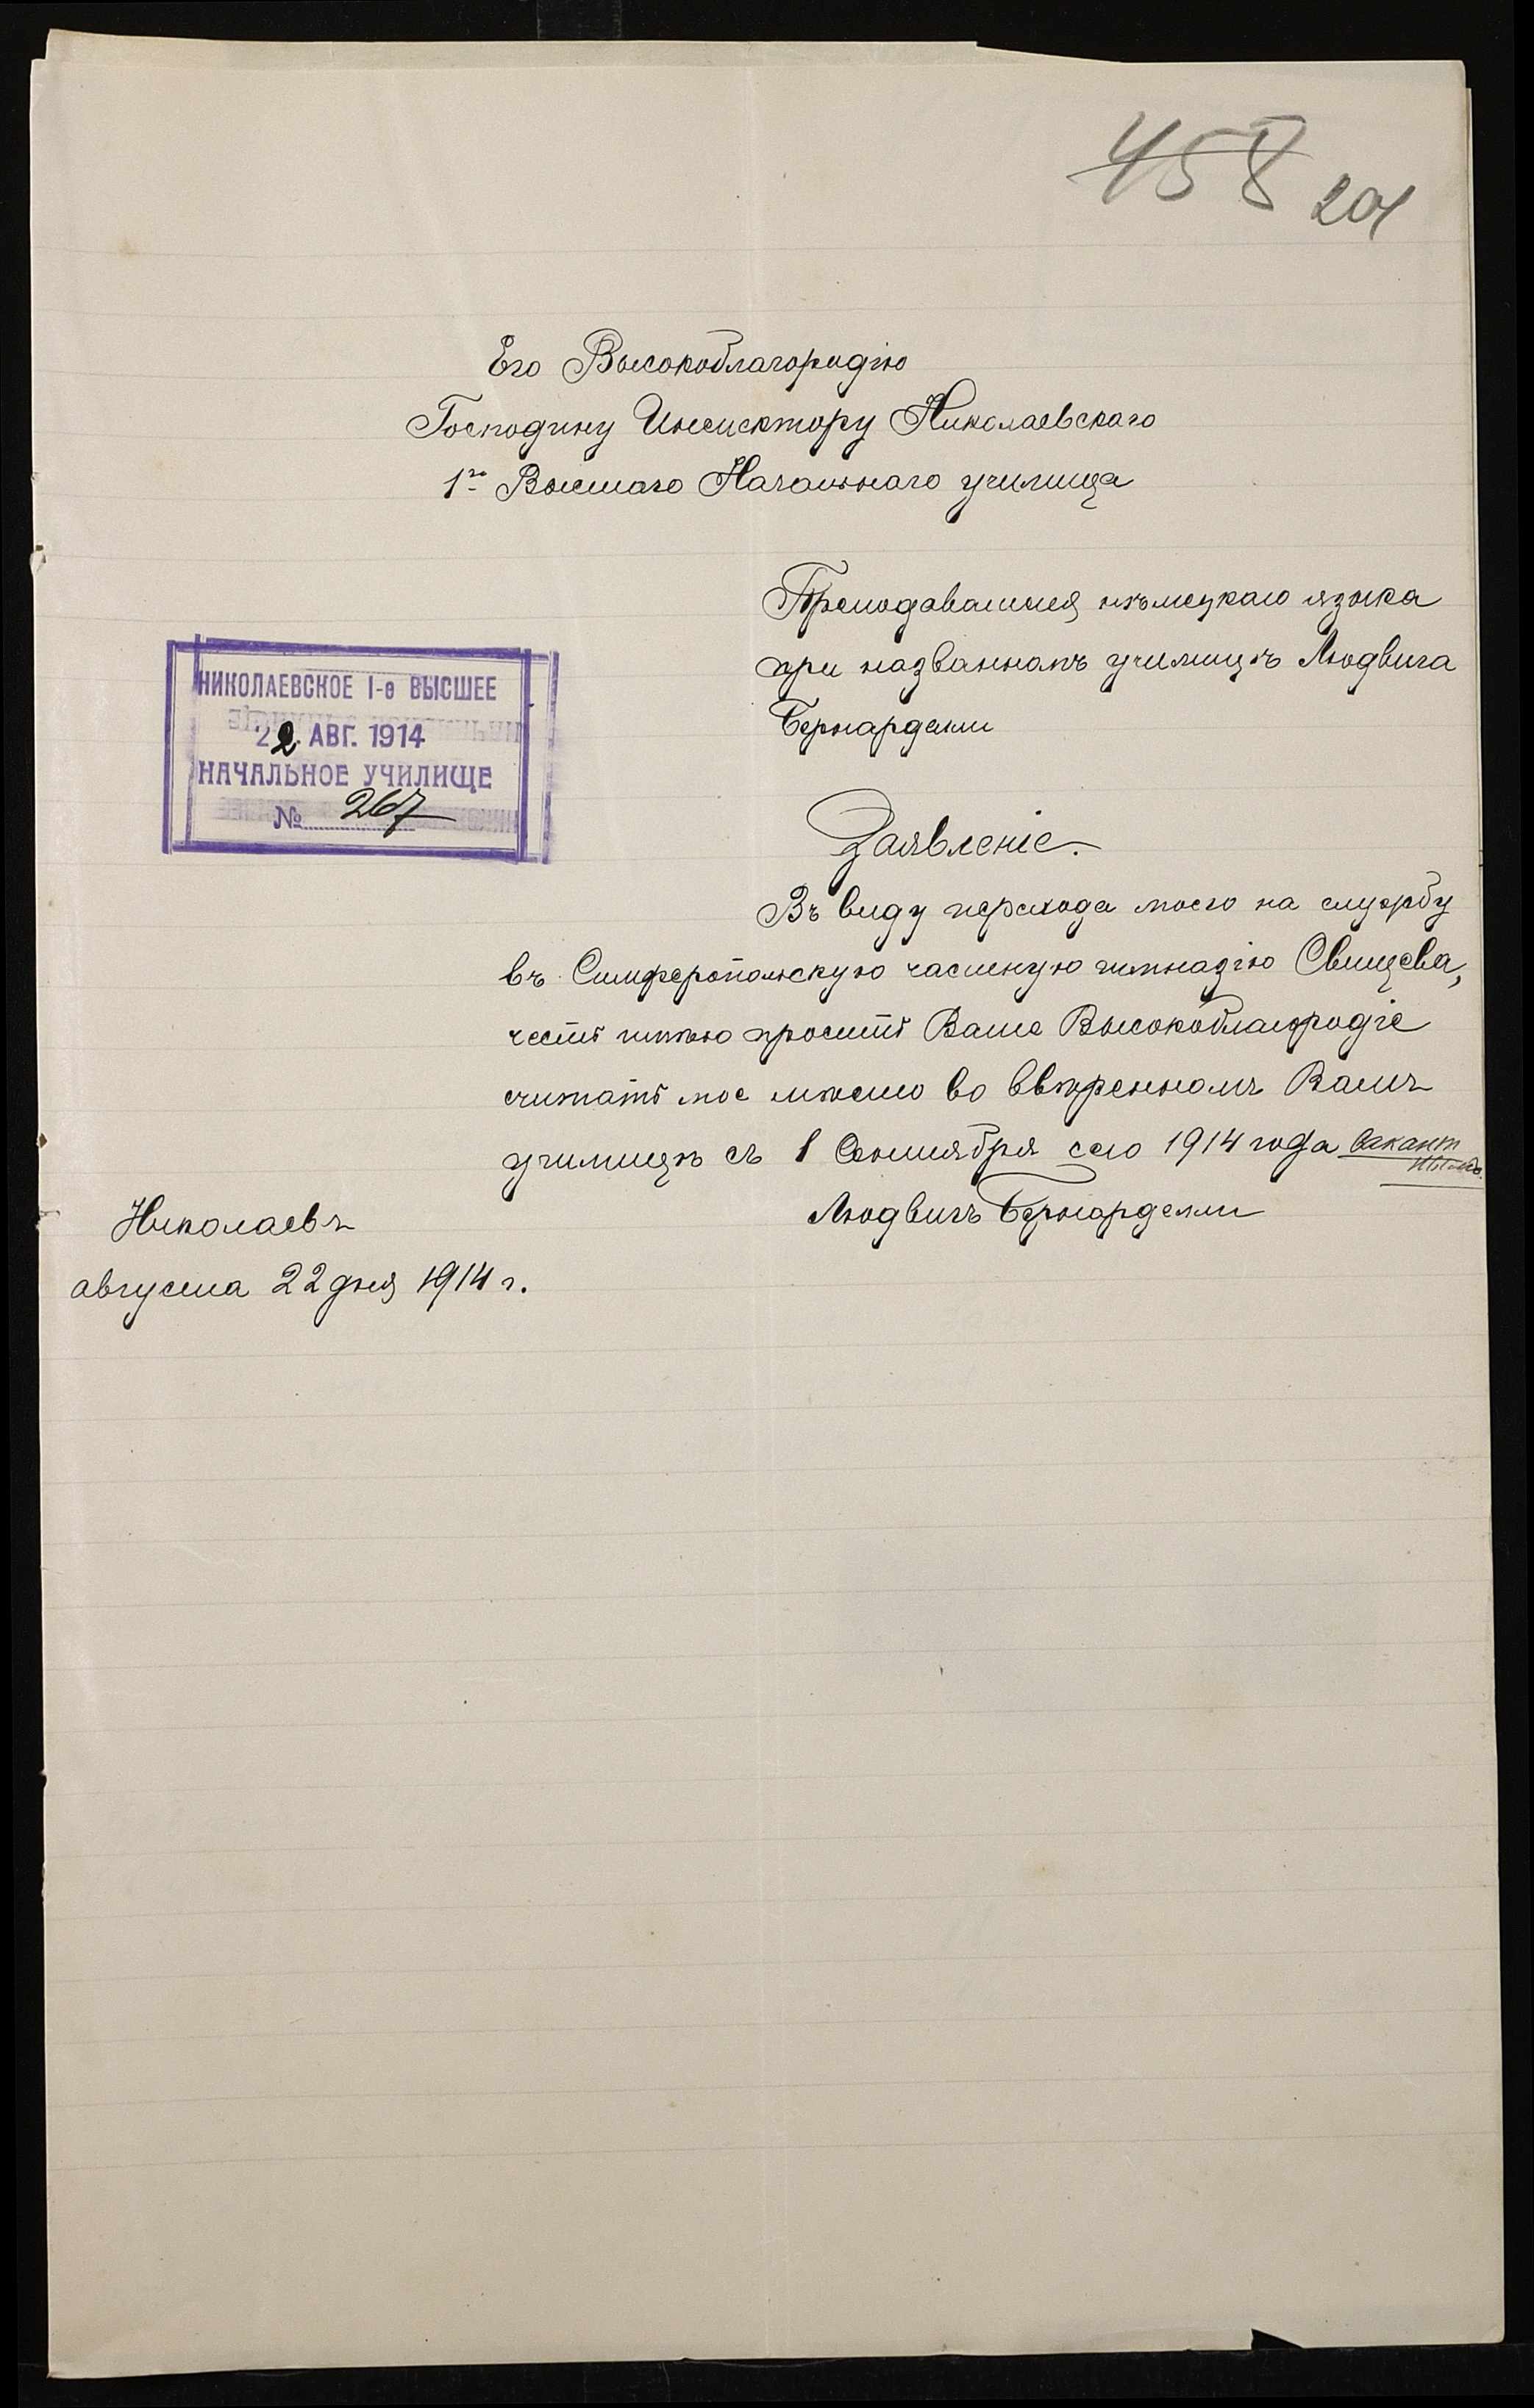 458 201
Его Высокоблагородію
Господину Инспектору Николаевскаго
1го Высшаго Начальнаго училища
Преподавателя нѣмецкаго языка
при названномъ училищѣ Людвига
Бернарделли
НИКОЛАЕВСКОЕ 1-е ВЫСШЕЕ
22 АВГ. 1914
НАЧАЛЬНОЕ УЧИЛИЩЕ
№ 267
Заявленіе.
Въ виду перехода моего на службу
въ Симферопольскую частную гимназію Свищева,
честь имѣю просить Ваше Высокоблагородіе
считать мое мѣсто во ввѣренномъ Вамъ
училищѣ съ 1 Сентября сего 1914 года вакант
нымъ.
Людвигъ Бернарделли
Николаевъ
августа 22 дня 1914 г.